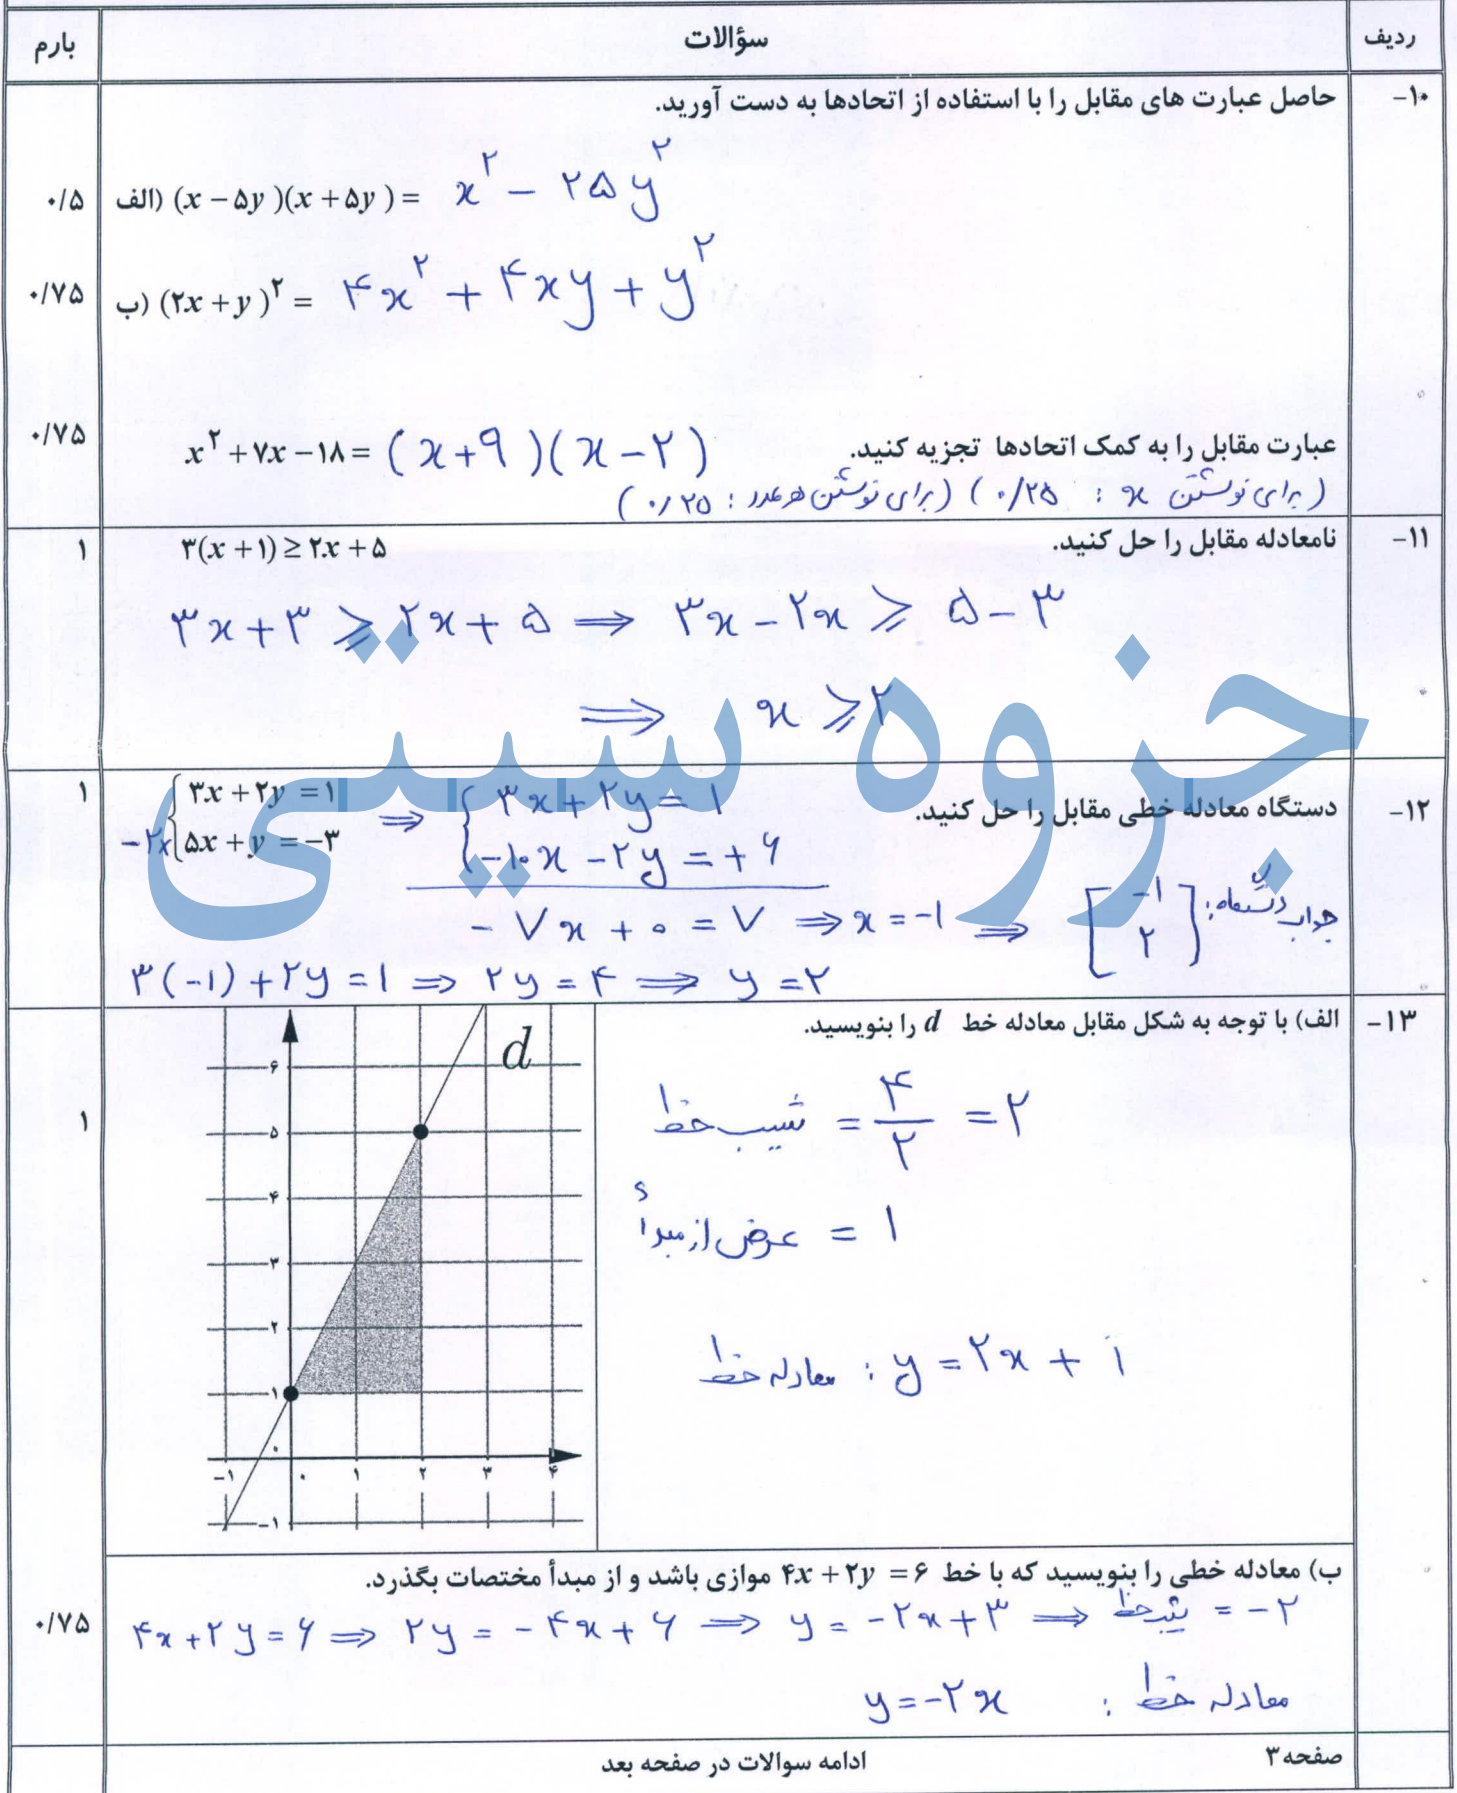 ردیف سؤالات بارم
۱۰- حاصل عبارت های مقابل را با استفاده از اتحادها به دست آورید.
الف) (x − ۵y)(x + ۵y) = x^۲ − ۲۵y^۲ ۰/۵
ب) (۲x + y)^۲ = ۴x^۲ + ۴xy + y^۲ ۰/۷۵
عبارت مقابل را به کمک اتحادها تجزیه کنید. x^۲ + ۷x − ۱۸ = (x+۹)(x−۲) ۰/۷۵
(برای نوشتن x : ۰/۲۵) (برای نوشتن هر عدد : ۰/۲۵)
۱۱- نامعادله مقابل را حل کنید. ۳(x + ۱) ≥ ۲x + ۵ ۱
۳x + ۳ ⩾ ۲x + ۵ ⟹ ۳x − ۲x ⩾ ۵ − ۳
⟹ x ⩾ ۲
جزوه سیتی
۱۲- دستگاه معادله خطی مقابل را حل کنید. ۱
{ ۳x + ۲y = ۱ ⟹ { ۳x + ۲y = ۱
−۲× { ۵x + y = −۳ { −۱۰x − ۲y = +۶
−۷x + ۰ = ۷ ⟹ x = −۱ ⟹ جواب دستگاه: [−۱ ۲]
۳(−۱) + ۲y = ۱ ⟹ ۲y = ۴ ⟹ y = ۲
۱۳- الف) با توجه به شکل مقابل معادله خط d را بنویسید. ۱
شیب خط = ۴/۲ = ۲
۱
عرض از مبدأ = ۱
معادله خط : y = ۲x + ۱
d
۶
۵
۴
۳
۲
۱
۰
−۱ ۰ ۱ ۲ ۳ ۴
−۱
ب) معادله خطی را بنویسید که با خط ۴x + ۲y = ۶ موازی باشد و از مبدأ مختصات بگذرد.
۴x + ۲y = ۶ ⟹ ۲y = −۴x + ۶ ⟹ y = −۲x + ۳ ⟹ شیب خط = −۲ ۰/۷۵
معادله خط : y = −۲x
صفحه ۳ ادامه سوالات در صفحه بعد